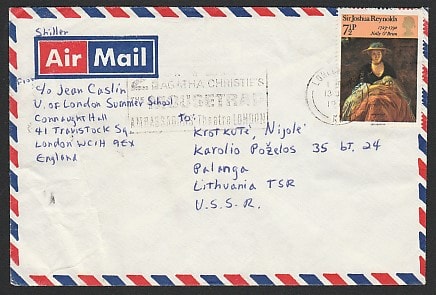 Shiller
Air Mail
From
c/o Jean Caslin
U. of London Summer School
Connaught Hall
41 Travistock Sq
London WC1H 9EX
England
Sir Joshua Reynolds
7½P
1723-1792
Nelly O'Brien
AGATHA CHRISTIE'S
AMBASSADORS Theatre LONDON
To:
Krotkutė, Nijolė
Karolio Poželos 35 bt. 24
Palanga
Lithuania TSR
U.S.S.R.